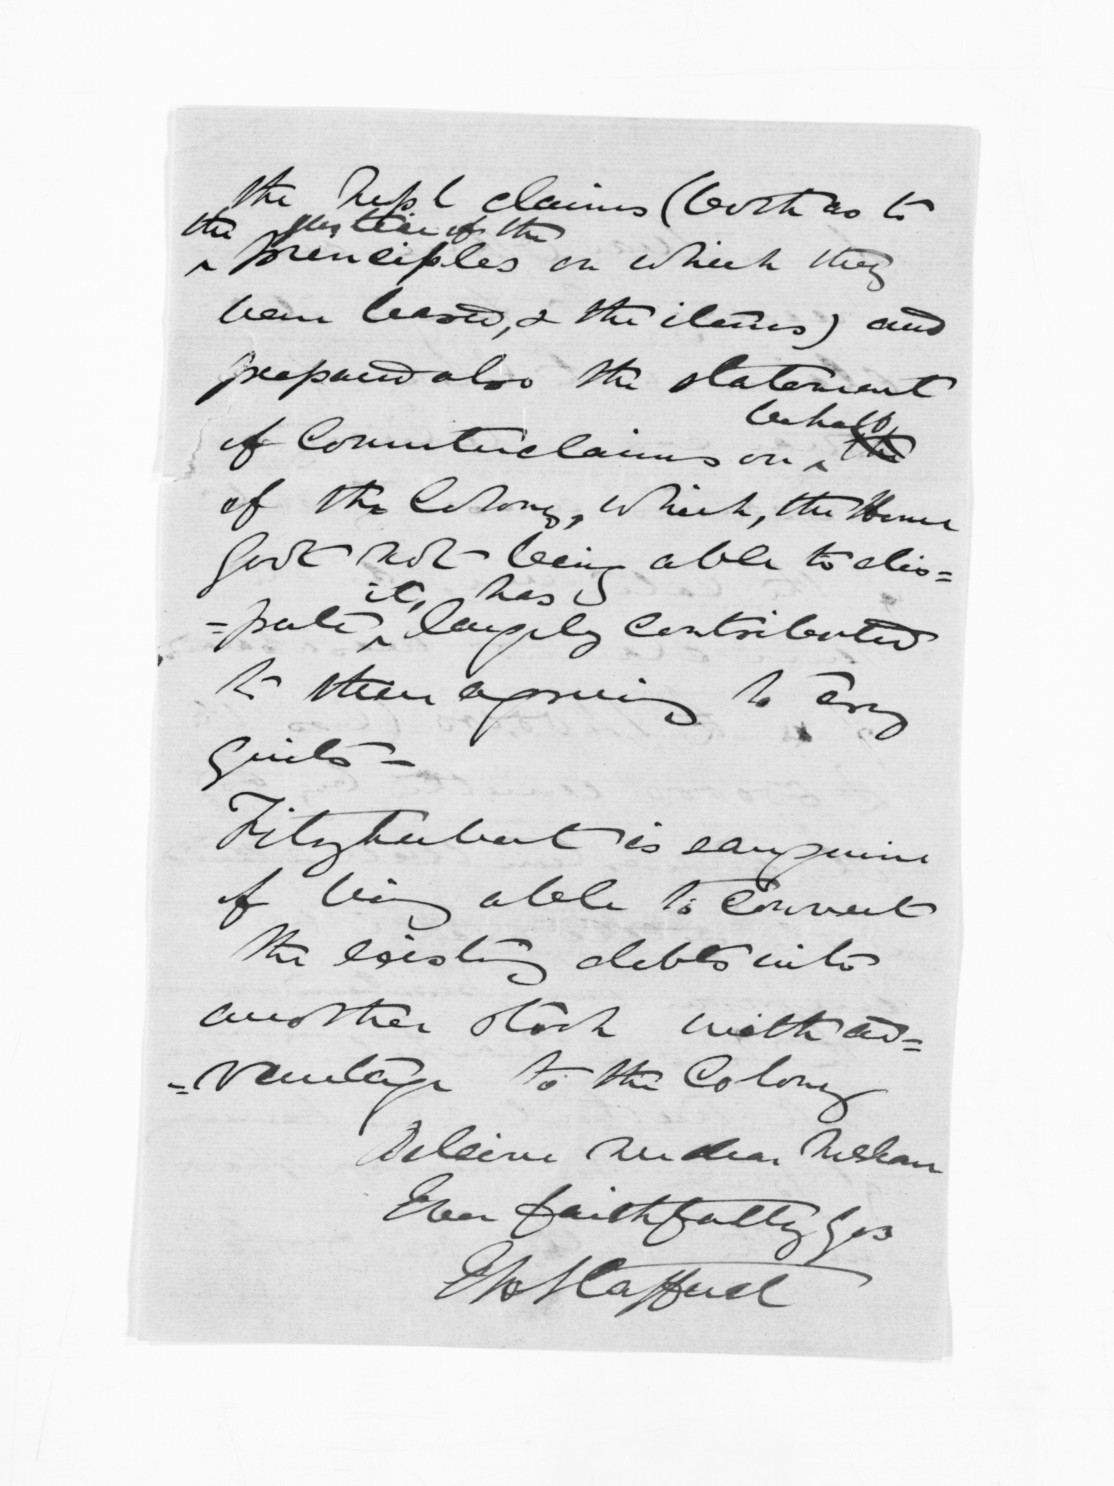 the Impl claims (both as to
the justice of the
principles on which they
were based, & the items) and
prepared also the statement
behalf
of Counterclaims on the
of the Colony, which, the Home
Govt not being able to dis=
it, has
=pute, largely contributed
to their agreeing to cry
quits -
Fitzherbert is sanguine
of being able to convert
the existing debts into
another stock with ad=
=vantage to the Colony
Believe me dear McLean
Ever faithfully yrs
EW Stafford